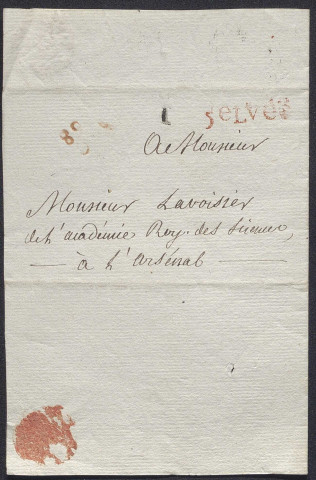 A Monsieur
Monsieur Lavoisier
de l'académie Roy. des Sciences,
à l'Arsénal